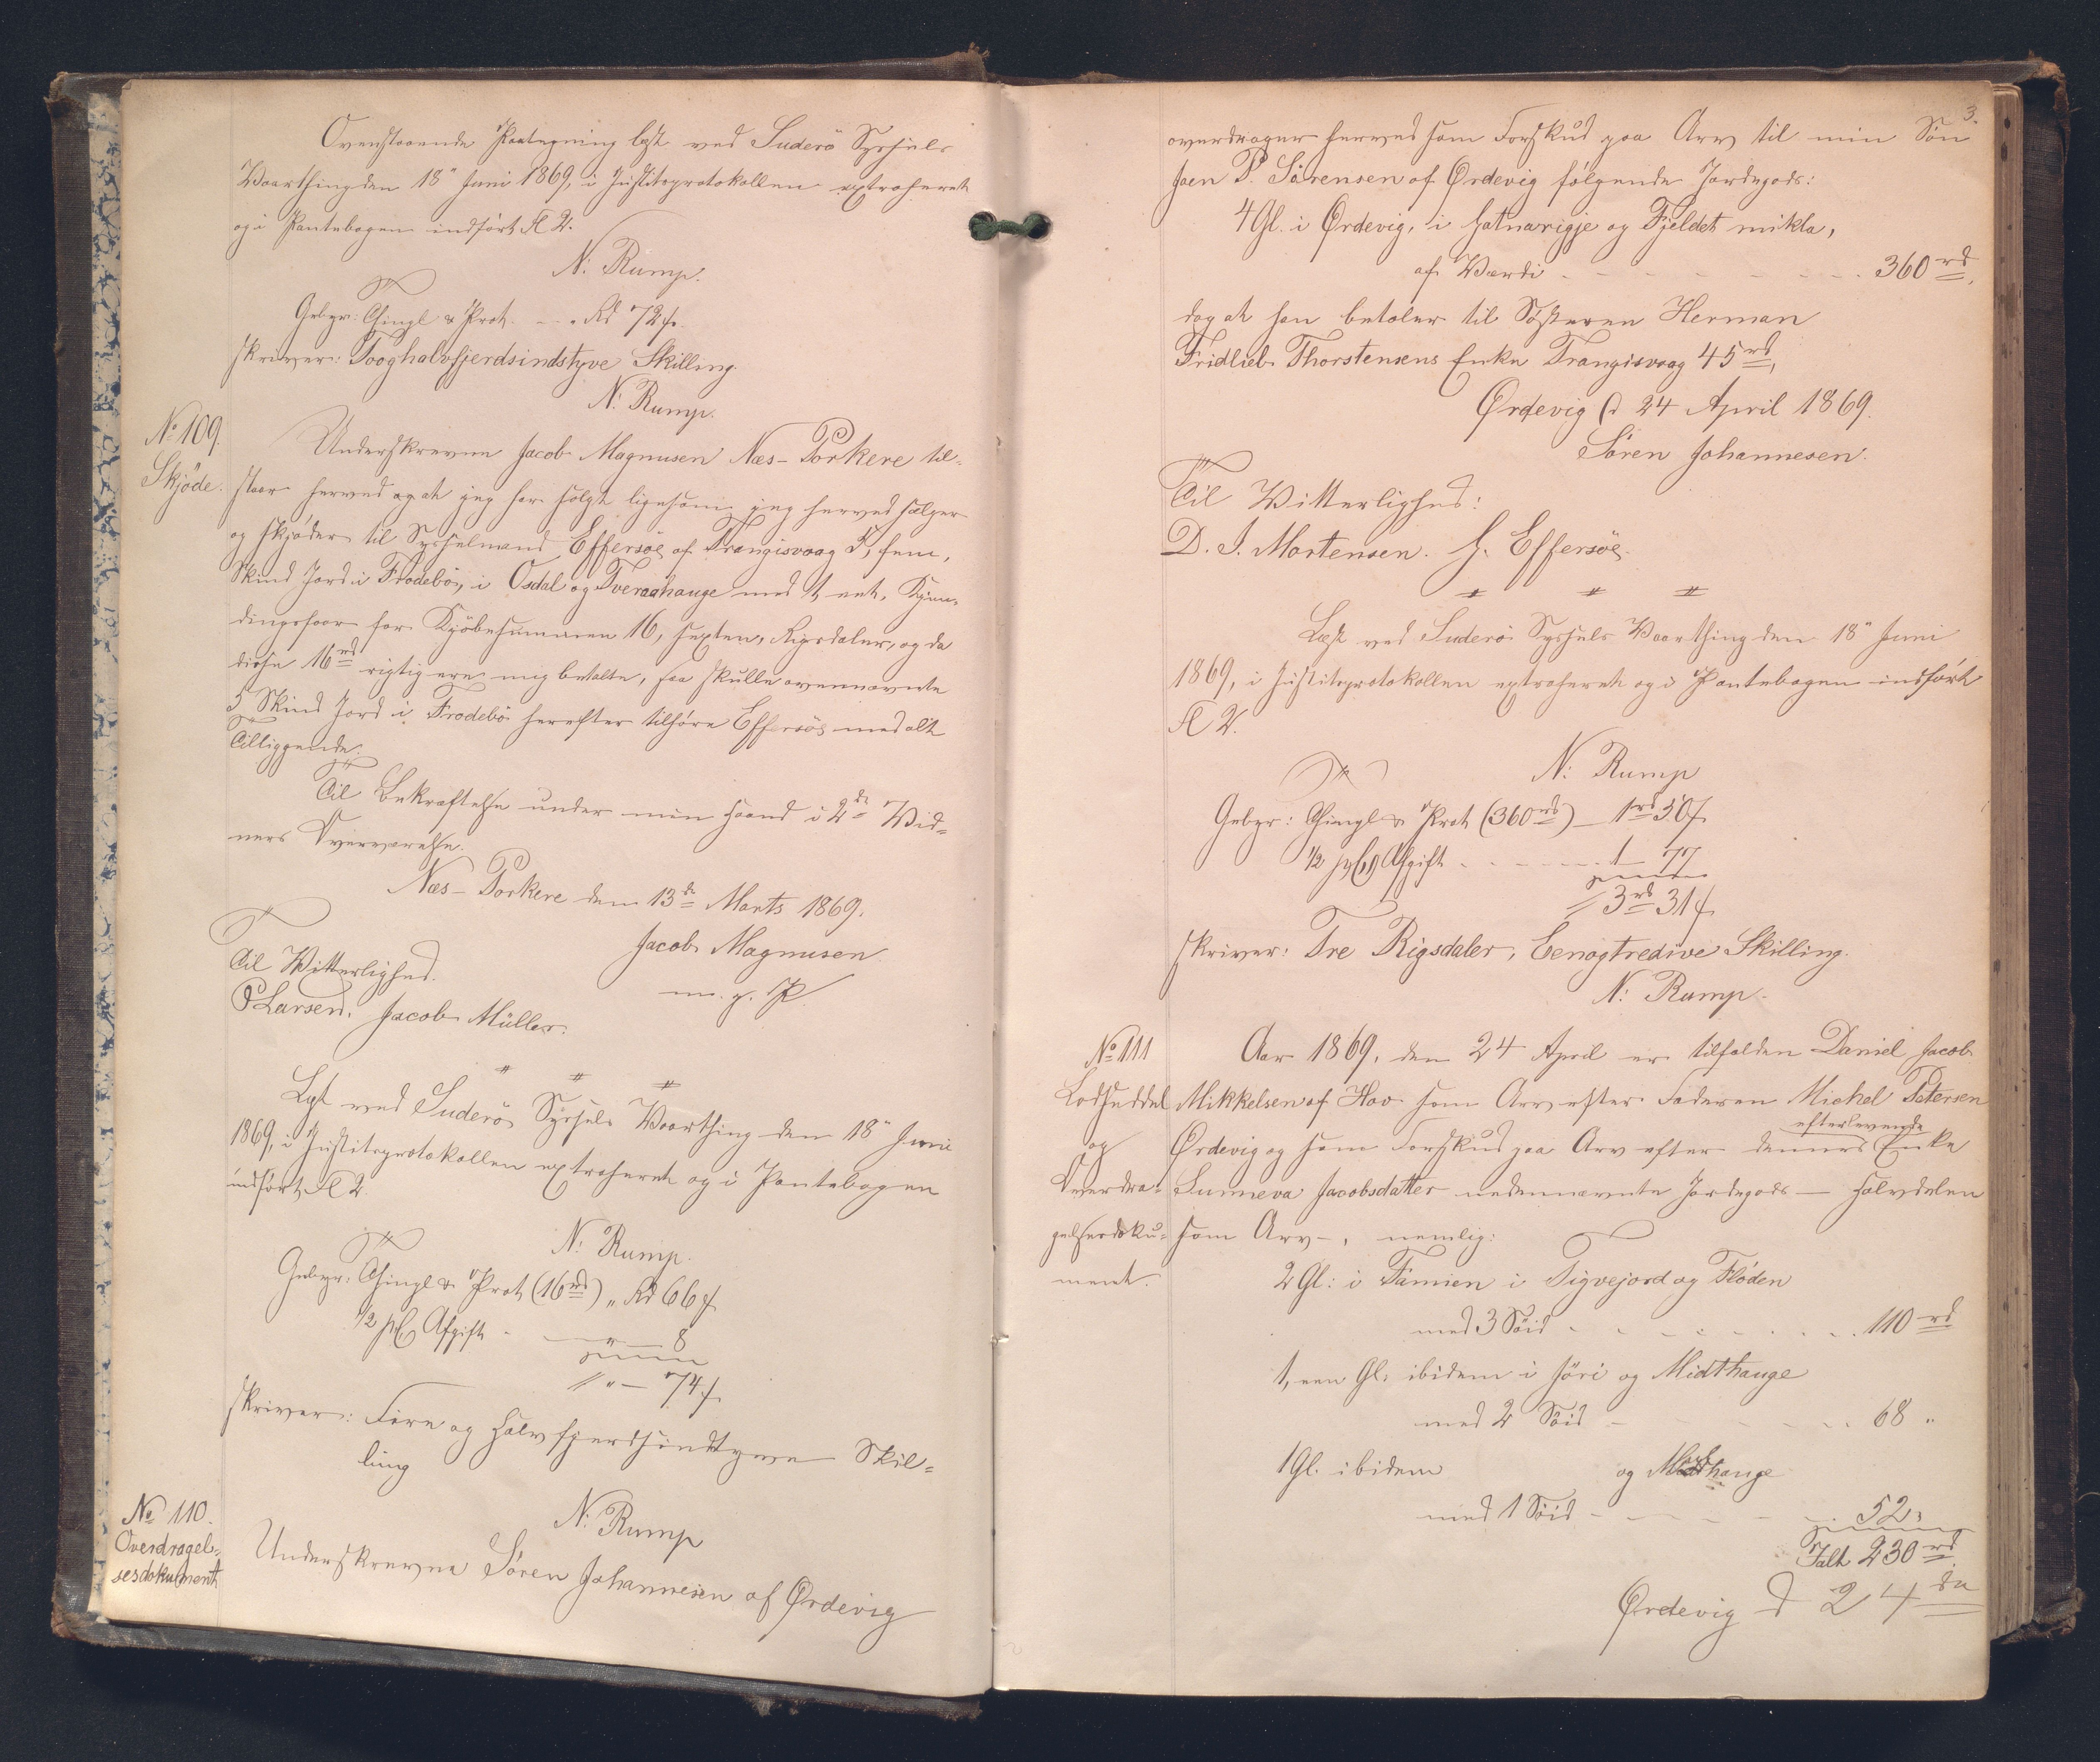 Ovenstaaende Paategning læst ved Suderö Syssels
Vaarthing den 18" Juni 1869, i Justitsprotokollen extraheret
og i Pantebogen indført A 2.
N: Rump.
Gebyr: Thingl & Prot. - - " Rd 72 ſ.
skriver: Tooghalvfjerdsindstyve Skilling.
N: Rump.
No 109.
Skjöde.
Underskrevne Jacob Magnusen Næs-Porkere til-
staar herved og at jeg har solgt ligesom jeg herved sælger
og skjöder til Sysselmand Effersöe af Trangisvaag 5, fem,
Skind Jord i Frodebö, i Osdal og Tveraahauge med 1, eet,
for Kjöbesummen 16, sexten, Rigsdaler, og da
disse 16 rd rigtig ere mig betalte, saa skulle ovennævnte
5 Skind Jord i Frodebö herefter tilhöre Effersöe med alt
Tilliggende.
Til Bekræftelse under min Haand i 2de Vid-
ners Overværelse.
Næs-Porkere den 13de Marts 1869.
Jacob Magnusen
m. p. P.
Til Vitterlighed.
P Larsen. Jacob Müller.
Læst ved Suderö Syssels Vaarthing den 18" Juni
1869, i Justitsprotokollen extraheret og i Pantebogen
indfört A 2.
N: Rump.
Gebyr: Thingl & Prot (16 rd) " Rd 66 ſ
1/2 pC Afgift - - " - 8
" - 74 ſ.
skriver: Fire og halvfjerdsindstyve Skil-
ling
N: Rump
No 110.
Overdragel-
sesdokument
Underskrevne Sören Johannesen af Ørdevig
3.
overdrager herved som Forskud paa Arv til min Sön
Joen P. Sörensen af Ørdevig fölgende Jordegods:
4 Gl. i Ørdevig, i Hatnarigje og Fjeldet mikla,
af Værdi - - - - - - - 360 rd,
dog at han betaler til Sösteren Herman
Fridlieb Thorstensens Enke Trangisvaag 45 rd,
Ørdevig d 24 April 1869.
Sören Johannesen.
Til Vitterlighed:
D. J. Mortensen. H. Effersöe.
Læst ved Suderö Syssels Vaarthing den 18" Juni
1869, i Justitsprotokollen extraheret og i Pantebogen indfört
A 2.
N: Rump
Gebyr: Thingl & Prot (360 rd) - 1 rd 50 ſ
1/2 pC Afgift - - - - - - 1 - 77
3 rd 31 ſ.
skriver: Tre Rigsdaler, Eenogtredive Skilling.
N: Rump.
No 111
Lodseddel
og
Overdra-
gelsesdoku-
ment.
Aar 1869, den 24 April er tilfalden Daniel Jacob
Mikkelsen af Hov som Arv efter Faderen Michel Petersen
Ørdevig og som Forskud paa Arv efter dennes efterlevende Enke
Sunneva Jacobsdatter nedennævnte Jordegods - Halvdelen
som Arv -, nemlig:
2 Gl: i Fámien i Tigvejord og Flöden
med 3 Söid - - - - - - - 110 rd
1, een Gl: ibidem i Höri og Midthauge
med 2 Söid - - - - - 68 "
1 Gl. ibidem og Midthauge
med 1 Söid - - - - - 52 "
Ialt 230 rd.
Ørdevig d 24 de